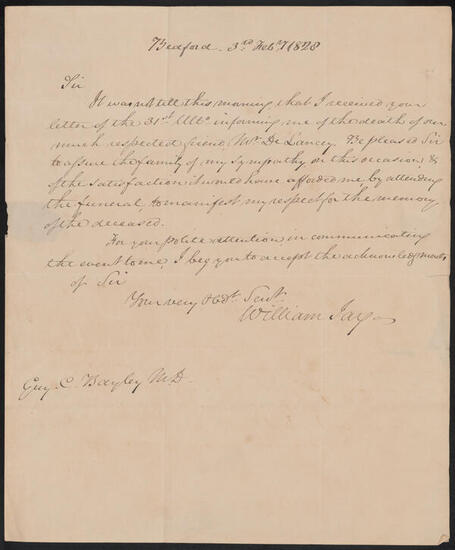 Bedford. 3rd Feby 1828
Sir
It was not till this morning that I received your
letter of the 31st Ulto. informing me of the death of our
much respected friend Mr. De Lancey. Be pleased Sir
to assure the family of my sympathy on this occasion, &
of the satisfaction it would have afforded me by attending
the funeral to manifest my respect for the memory
of the deceased.
For your polite attention in communicating
the event to me, I beg you to accept the acknowledgments
of Sir
Your very Obdt. Servt.
William Jay
Guy. C. Bayley M.D.